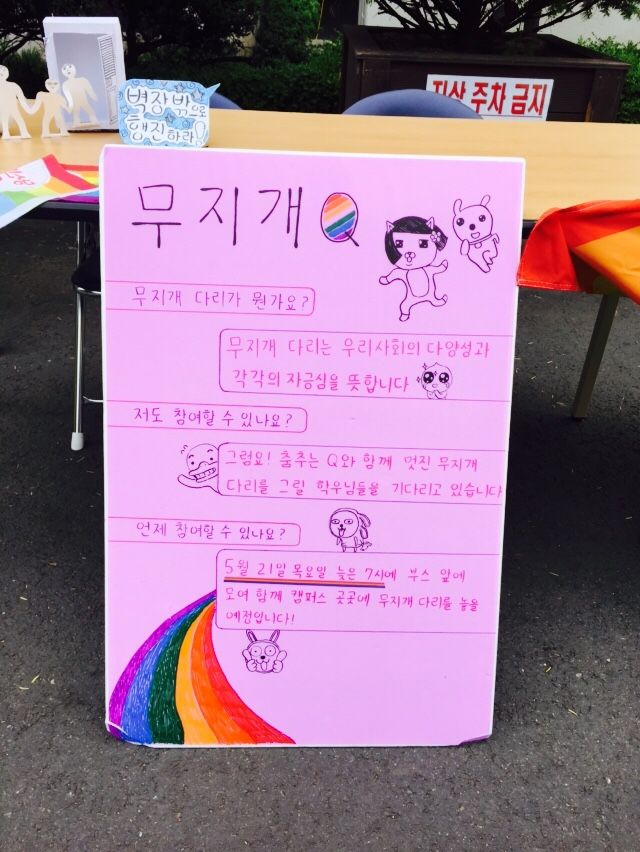 벽장 밖으로
행진하라
지상 주차 금지
무지개 Q
무지개 다리가 뭔가요?
무지개 다리는 우리사회의 다양성과
각각의 자긍심을 뜻합니다
저도 참여할 수 있나요?
그럼요! 춤추는 Q와 함께 멋진 무지개
다리를 그릴 학우님들을 기다리고 있습니다
언제 참여할 수 있나요?
5월 21일 목요일 늦은 7시에 부스 앞에
모여 함께 캠퍼스 곳곳에 무지개 다리를 놓을
예정입니다!